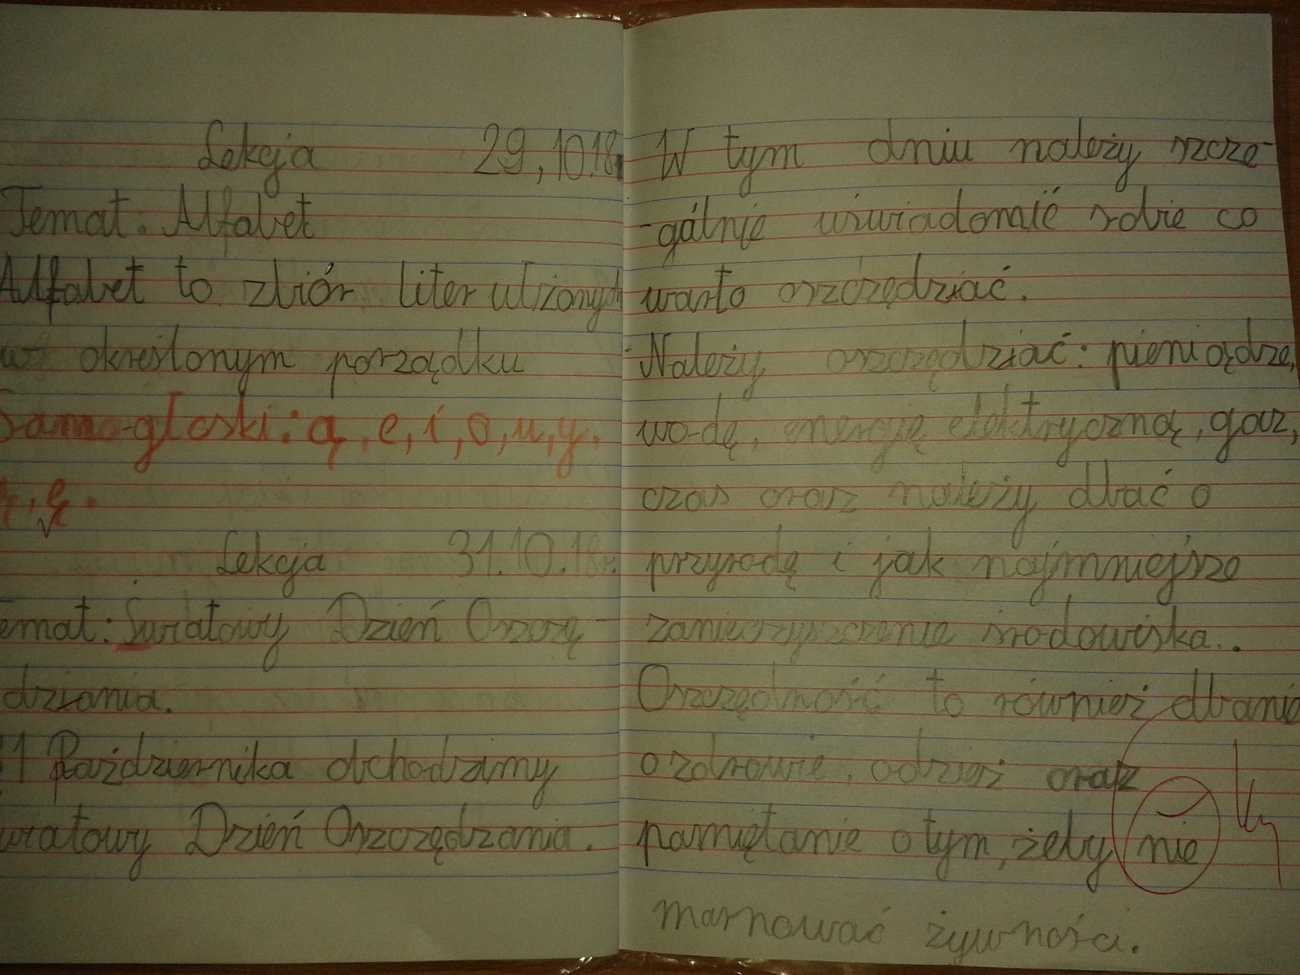 Lekcja 29.10.18
Temat: Alfabet
Alfabet to zbiór liter ułżonych
w okreslonym porządku
Samo-głoski: a, e, i, o, u, y,
ą, ę.
Lekcja 31.10.18r.
emat: Światowy Dzień Oszczę-
dzania.
31 Października obchodzimy
wiatowy Dzień Oszczędzania.
W tym dniu należy szcze-
-gólnie uświadomić sobie co
warto oszczędziać.
Należy oszczędziać: pieniądze,
wo-dę, energię elektryczną, gaz,
czas oraz należy dbać o
przyrodę i jak najmniejsze
zanieczyszczenie środowiska..
Oszczędność to również dbanie
o zdrowie, odzież oraz
pamiętanie o tym, żeby nie
marnować żywności.